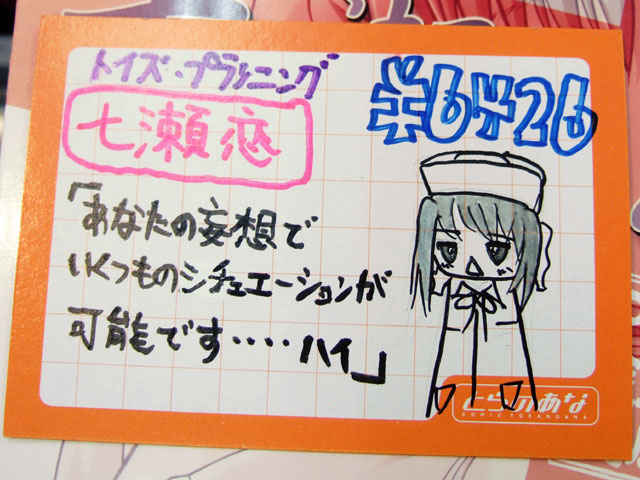 トイズ・プランニング
七瀬恋
￥6426
「あなたの妄想で
いくつものシチュエーションが
可能です‥‥ハイ」
とらのあな
COMIC TORANOANA